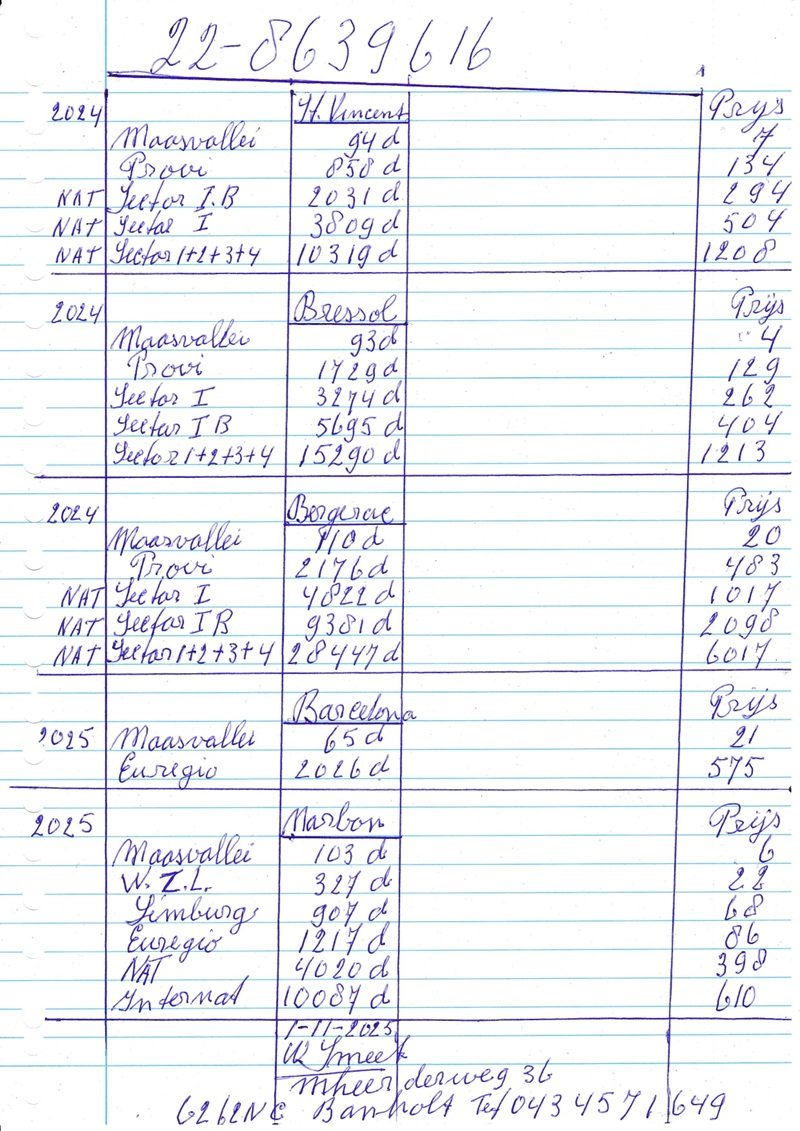 22-8639616
2024 St. Vincent Prijs
Maasvallei 94 d 7
Provi 858 d 134
NAT Sector I.B 2031 d 294
NAT Sector I 3809 d 504
NAT Sector 1+2+3+4 10319 d 1208
2024 Bressol Prijs
Maasvallei 93 d 4
Provi 1729 d 129
Sector I 3274 d 262
Sector I B 5695 d 404
Sector 1+2+3+4 15290 d 1213
2024 Bergerac Prijs
Maasvallei 110 d 20
Provi 2176 d 483
NAT Sector I 4822 d 1017
NAT Sector I B 9381 d 2098
NAT Sector 1+2+3+4 28447 d 6017
Barcelona Prijs
2025 Maasvallei 65 d 21
Euregio 2026 d 575
2025 Narbon Prijs
Maasvallei 103 d 6
W.Z.L. 327 d 22
Limburg 907 d 68
Euregio 1217 d 86
NAT 4020 d 398
Internat 10087 d 610
1-11-2025
Mheerderweg 36
6262NC Banholt Tel 043 4571649